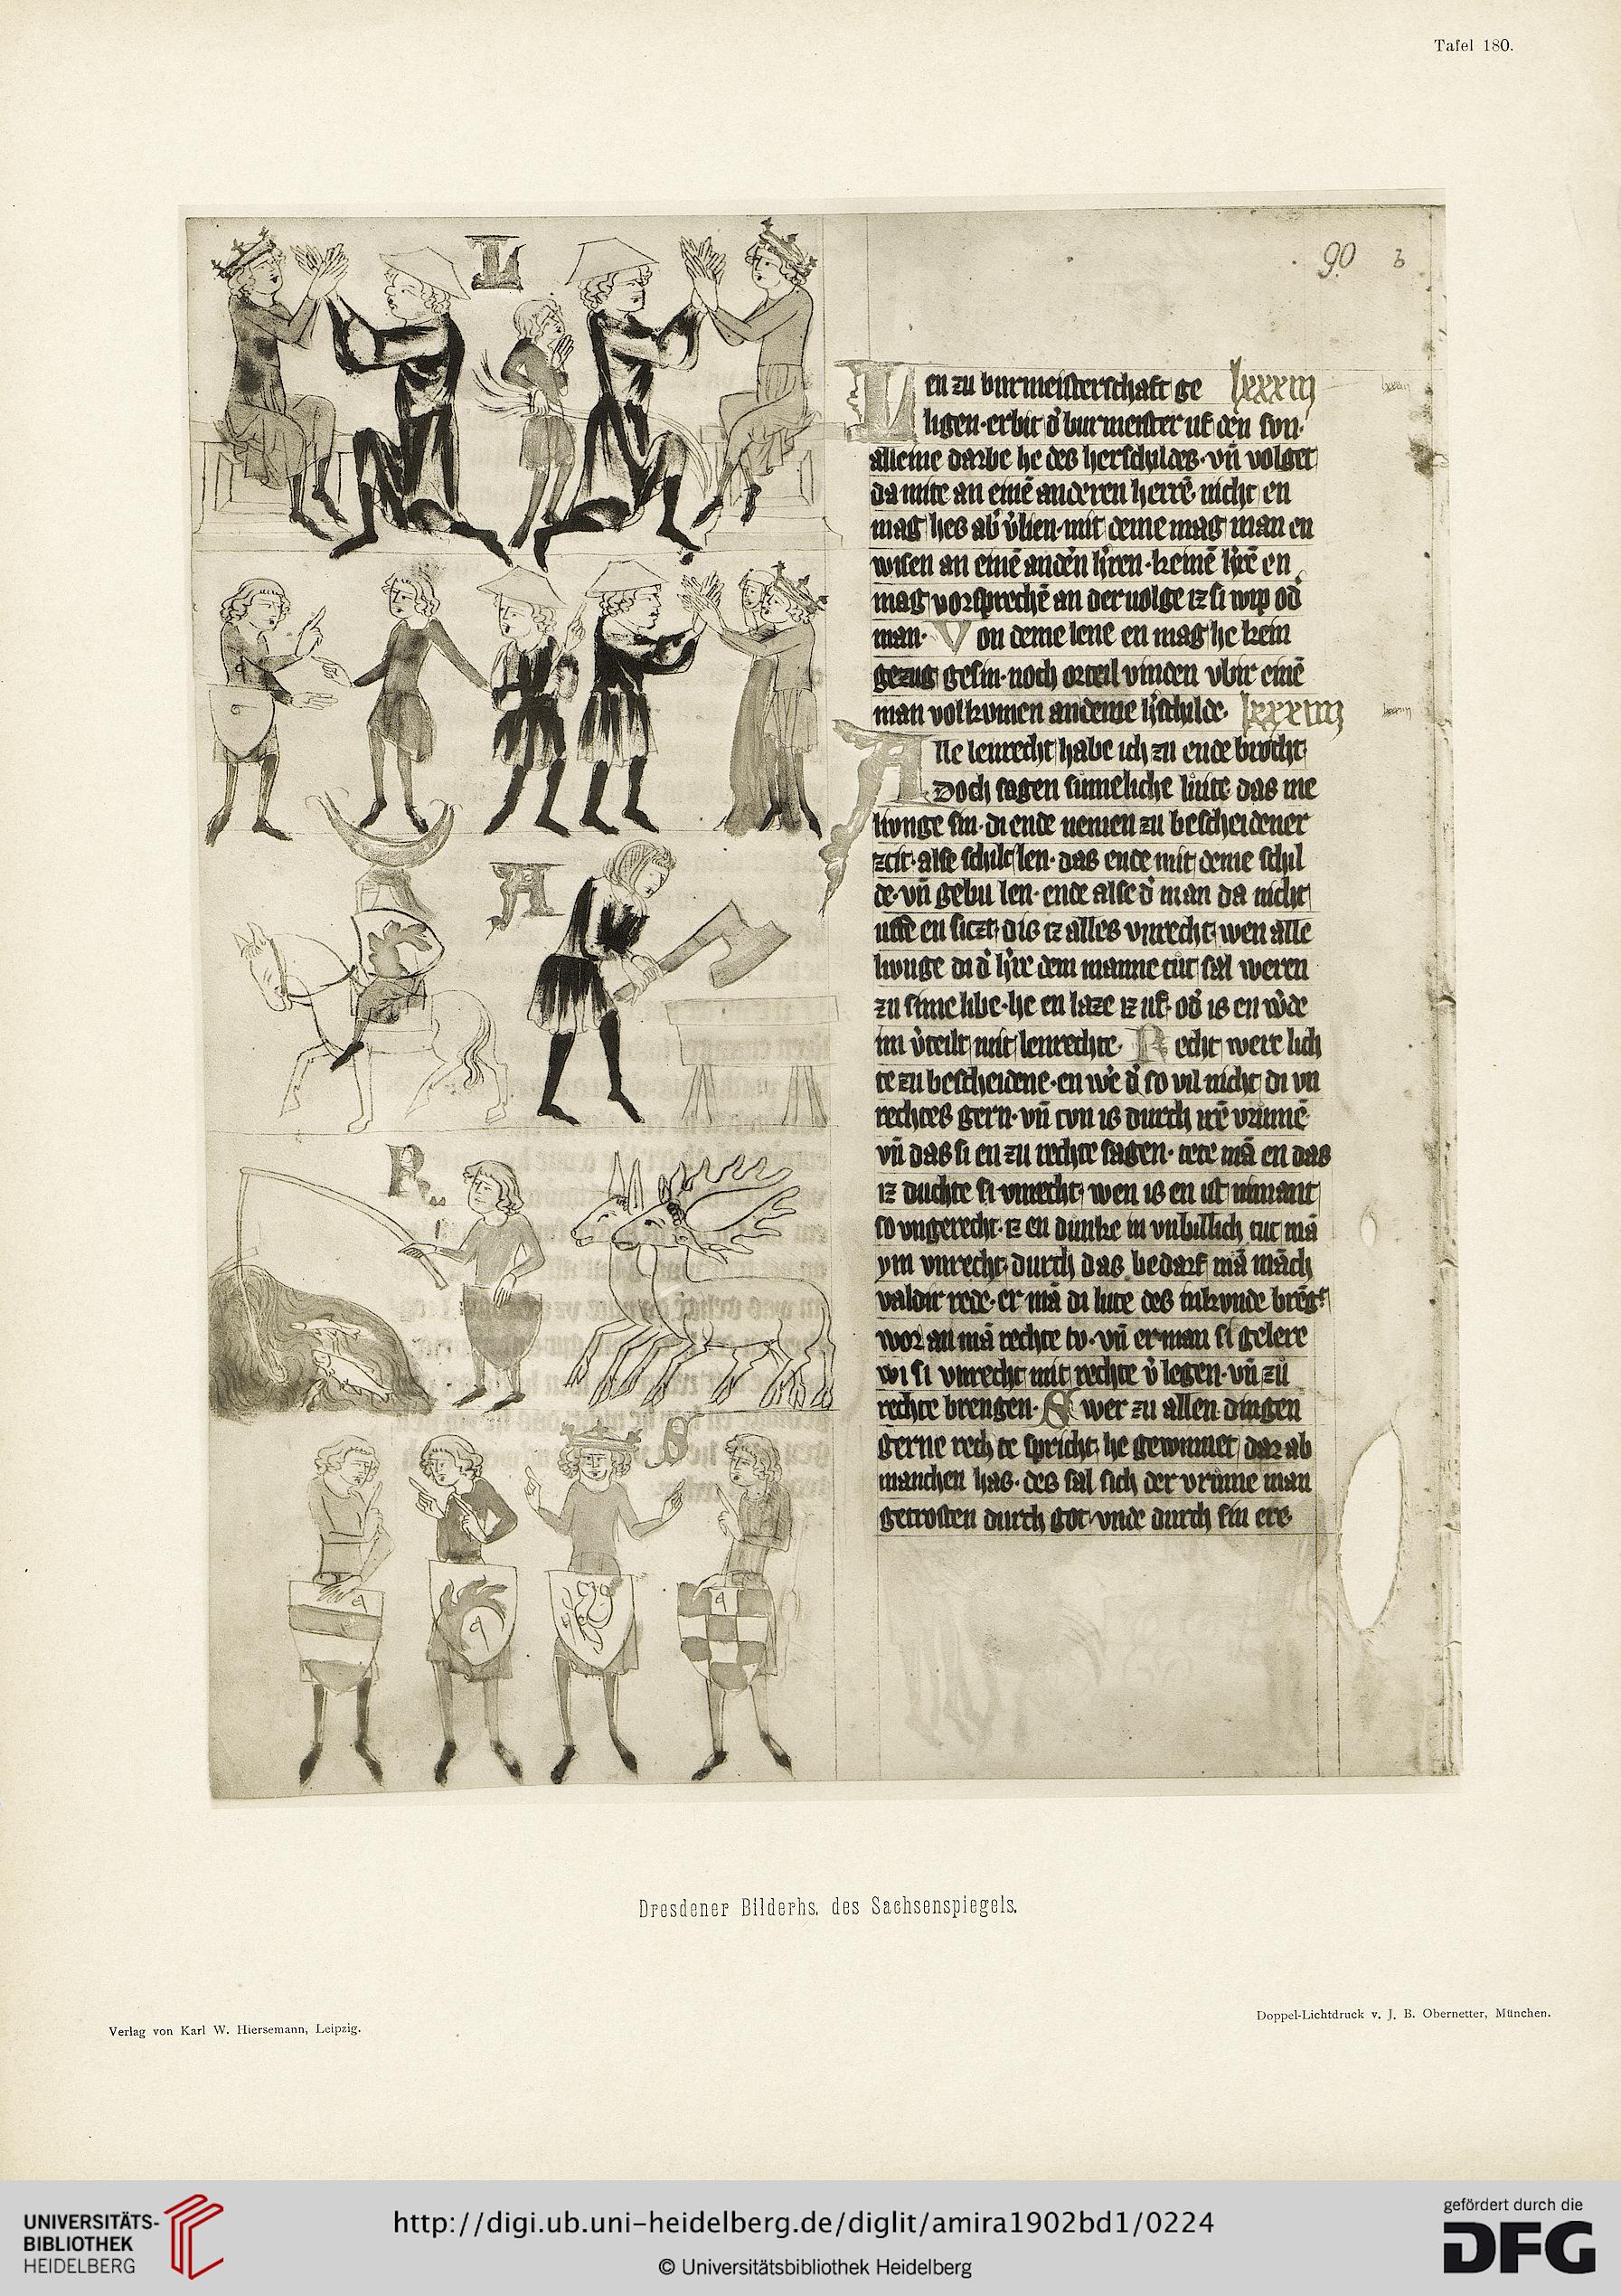 Tafel 180.
90 b
L
Len zu burmeisterschaft ge lxxxiij
ligen · erbit d' burmeister uf den son ·
alleine darbe he des herschildes · vñ volget
da mite an einē anderen herrē nicht en
mag hes ab' v'lien · mit deme mag man en
wisen an einē andn h'ren · keinē h're en
mag vorsprechē an der volge iz si wip od'
man · Von deme lene en mag he kein
gezug gesin · noch orteil vinden vbir einē
man volkomen an deme h'schilde · lxxxiiij
Alle lenrecht habe ich zu ende brocht
Doch sagen sumeliche lute das me
livnge sin · di ende nemen zu bescheidener
zcit · alse schilt len · das ende mit deme schil
de · vñ gebu len · ende alse d' man da nicht
uffe en siczt · dis iz alles vnrecht · wen alle
livnge di d' h're dem manne tut sal weren
zu sime libe · he en laze iz uf · od' is en w'de
im v'teilt mit lenrechte · Recht were lich
te zu bescheidene · en we d' so vil nicht di vn
rechtes gern · vñ tvn is durch irē vrumē
vñ das si en zu rechte sagen · tete mā en das
iz duchte si vnrecht · wen is en ist nimant
so vngerecht · iz en dunke in vnbillich tut mā
ym vnrecht · durch das bedarf mā māch
valdir rede · er mā di lute des inkvnde brēg'
wor an mā rechte tv · vñ er man si gelere
wi si vnrecht mit rechte v'legen · vñ zu
rechte brengen · Swer zu allen dingen
gerne rechte spricht · he gewinnet dar ab
manchen has · des sal sich der vrume man
getrosten durch got · vnde durch sin ere
A
R
S
Dresdener Bilderhs. des Sachsenspiegels.
Verlag von Karl W. Hiersemann, Leipzig.
Doppel-Lichtdruck v. J. B. Obernetter, München.
UNIVERSITÄTS-
BIBLIOTHEK
HEIDELBERG
http://digi.ub.uni-heidelberg.de/diglit/amira1902bd1/0224
© Universitätsbibliothek Heidelberg
gefördert durch die
DFG